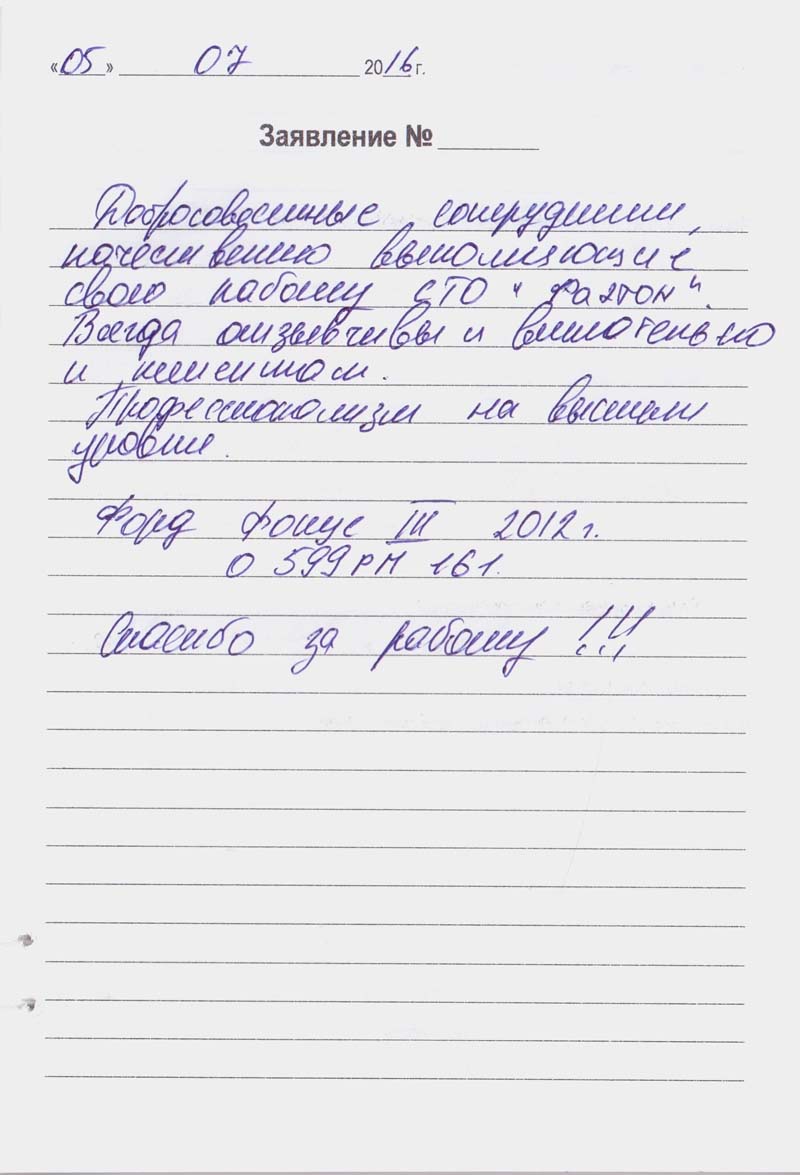 «05» 07 2016 г.
Заявление № ______
Добросовестные сотрудники,
качественно выполняющие
свою работу СТО "Фаэтон".
Всегда отзывчивы и внимательно
к клиентам.
Профессионализм на высшем
уровне.
Форд Фокус III 2012 г.
О 599 РМ 161.
Спасибо за работу !!!